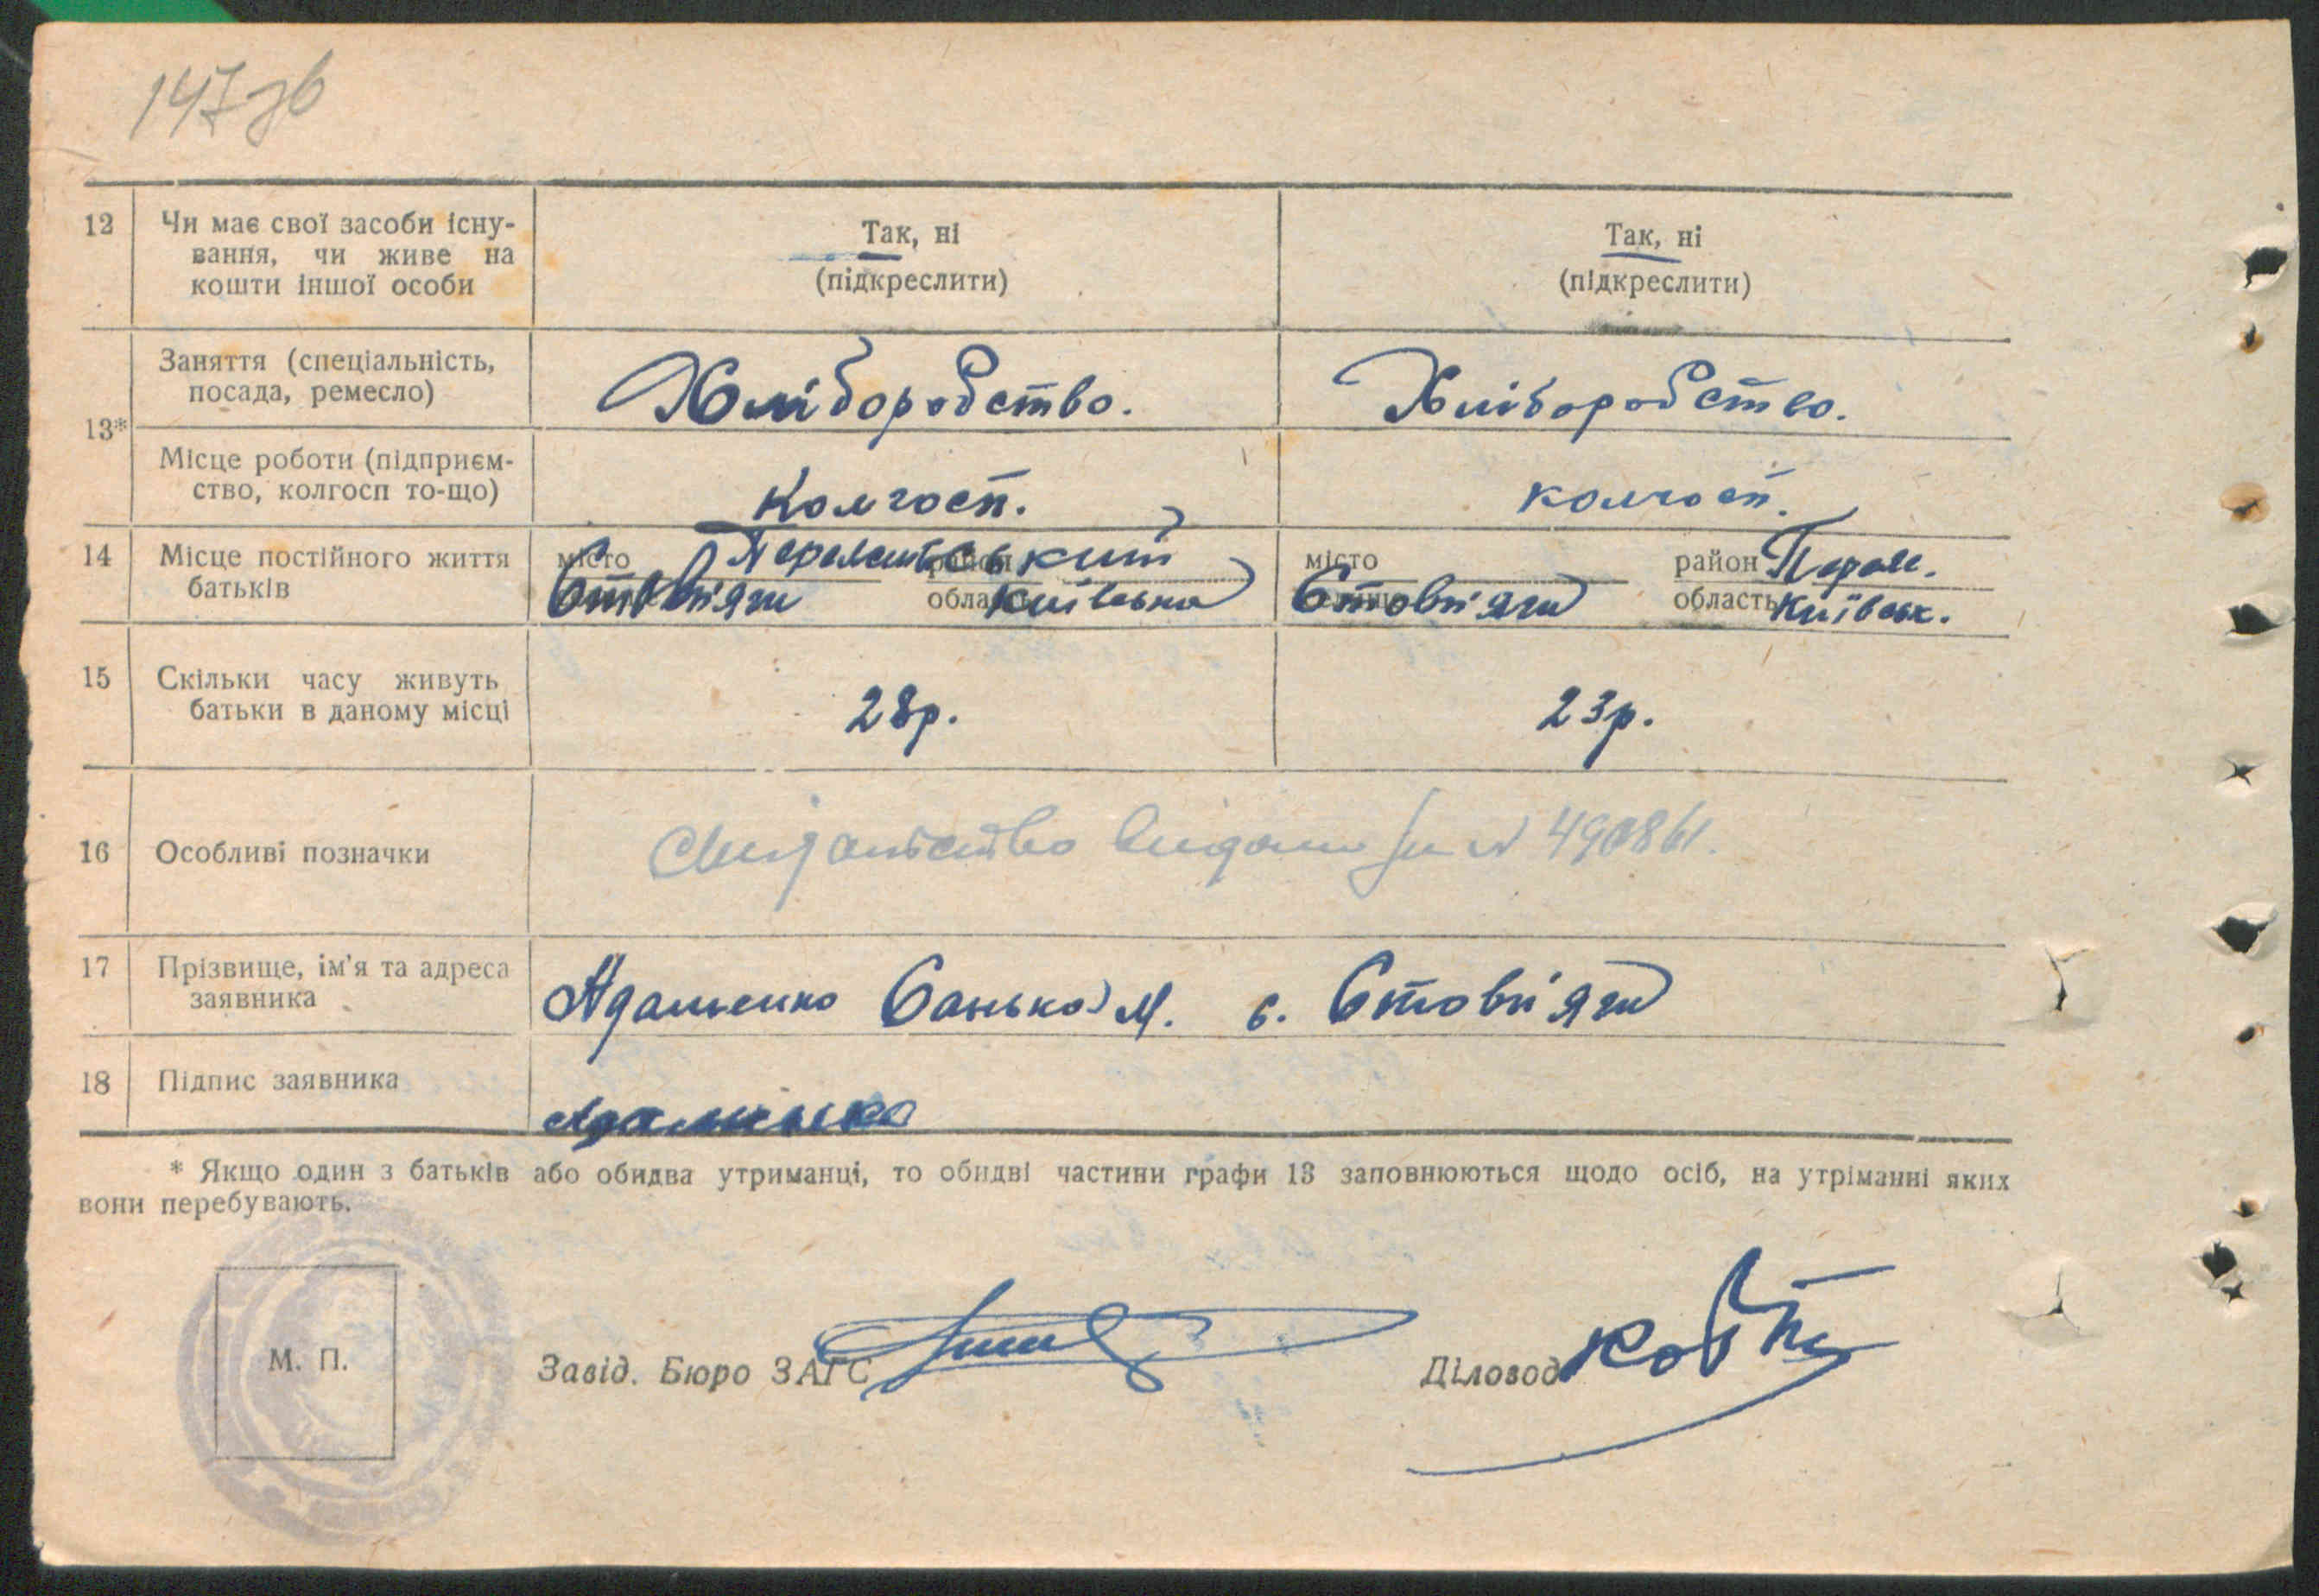 147зв
12 Чи має свої засоби існу- Так, ні Так, ні
вання, чи живе на
кошти іншої особи (підкреслити) (підкреслити)
13* Заняття (спеціальність,
посада, ремесло) Хліборобство. Хліборобство.
Місце роботи (підприєм-
ство, колгосп то-що) Колгосп. колгосп.
14 Місце постійного життя місто район Переяславський місто район Переясл.
батьків Стовп'яги область Київська Стовп'яги область Київськ.
15 Скільки часу живуть
батьки в даному місці 28р. 23р.
16 Особливі позначки Свидоцтво видане за N 490861.
17 Прізвище, ім'я та адреса
заявника Адаменко Санька М. с. Стовп'яги
18 Підпис заявника Адаменко
* Якщо один з батьків або обидва утриманці, то обидві частини графи 13 заповнюються щодо осіб, на утріманні яких
вони перебувають.
М. П. Завід. Бюро ЗАГС Діловод